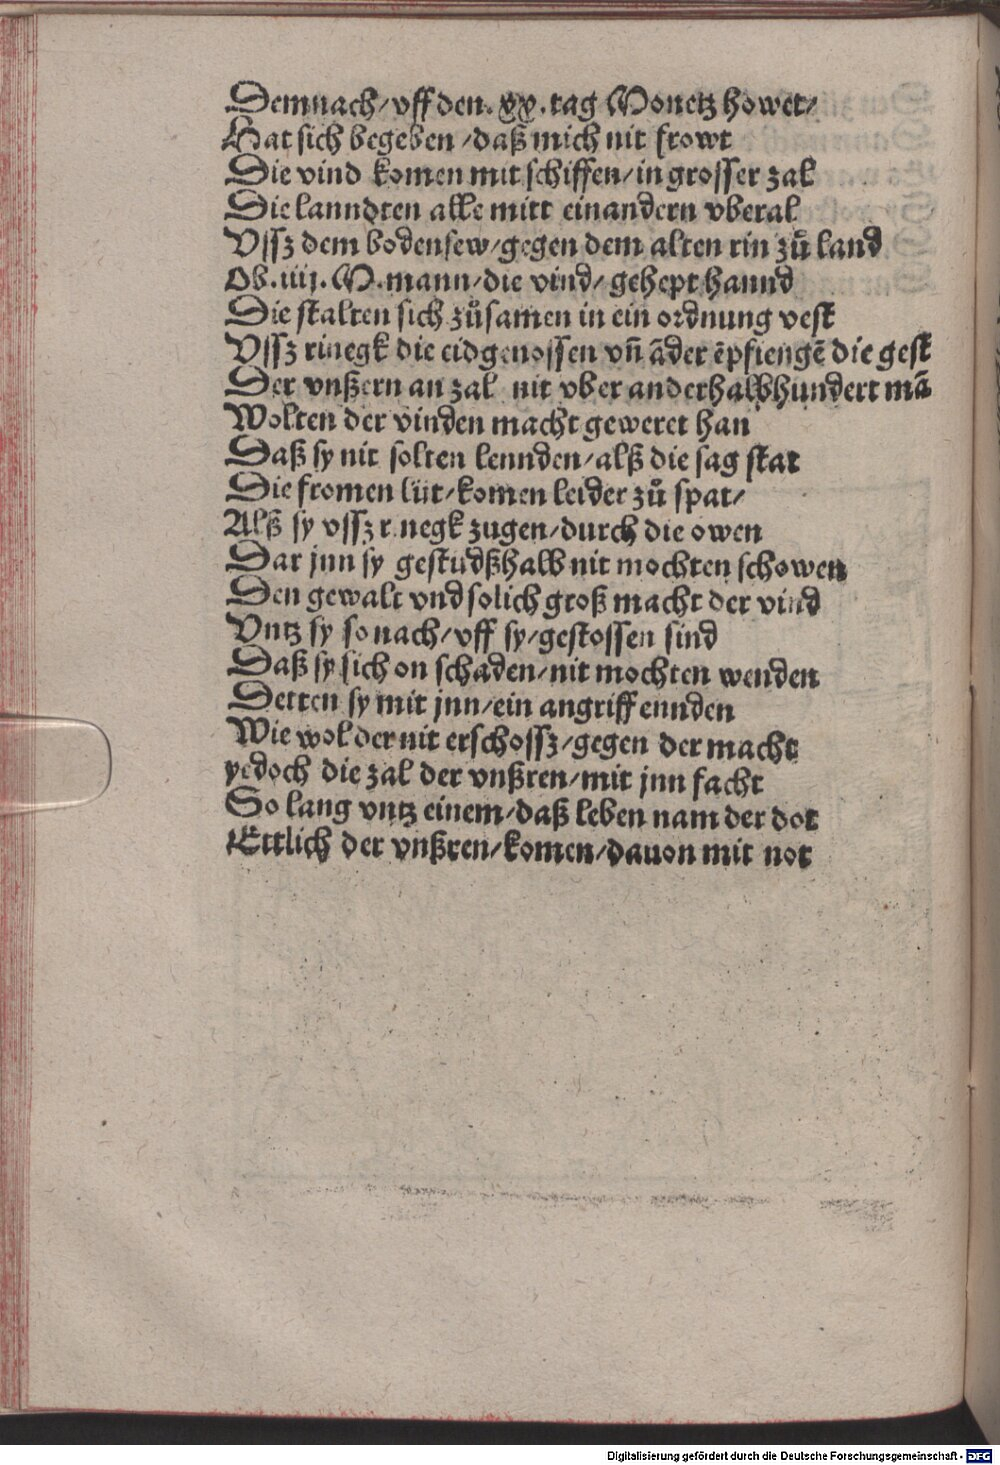 Demnach/vff den.xx.tag Monetz howet/
Hat sich begeben/daß mich nit frowt
Die vind komen mit schiffen/in grosser zal
Die lanndten alle mitt einandern vberal
Vssz dem bodensew/gegen dem alten rin zů land
Ob.iiij.M.mann/die vind/gehept hannd
Die stalten sich zůsamen in ein ordnung vest
Vssz rinegk die eidgenossen vñ ãder ẽpfiengẽ die gest
Der vnßern an zal nit vber anderhalbhundert mã
Wolten der vinden macht geweret han
Daß sy nit solten lennden/alß die sag stat
Die fromen lüt/komen leider zů spat/
Alß sy vssz r negk zugen/durch die owen
Dar jnn sy gestüdßhalb nit mochten schowen
Den gewalt vnd solich groß macht der vind
Vntz sy so nach/vff sy/gestossen sind
Daß sy sich on schaden/nit mochten wenden
Detten sy mit jnn/ein angriff ennden
Wie wol der nit erschossz/gegen der macht
yedoch die zal der vnßren/mit jnn facht
So lang vntz einem/daß leben nam der dot
Ettlich der vnßren/komen/dauon mit not
Digitalisierung gefördert durch die Deutsche Forschungsgemeinschaft - DFG